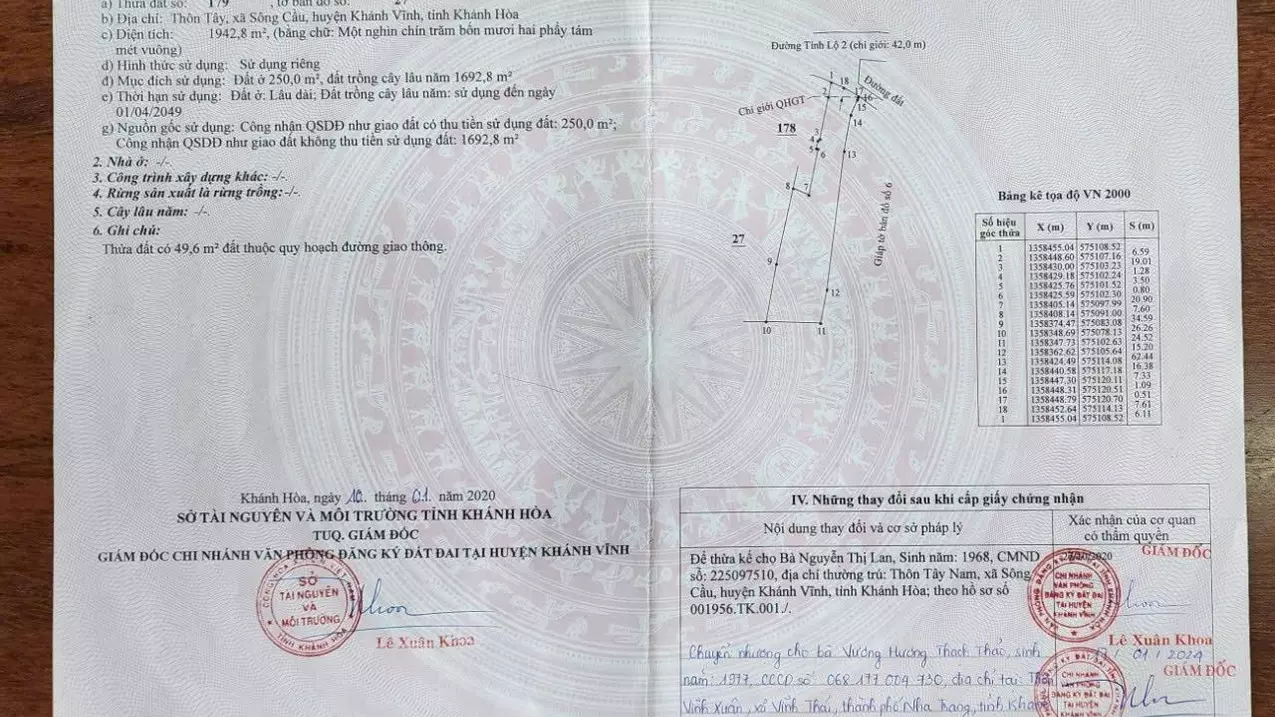 a) Thửa đất số: 179 , tờ bản đồ số: 27
b) Địa chỉ: Thôn Tây, xã Sông Cầu, huyện Khánh Vĩnh, tỉnh Khánh Hòa
c) Diện tích: 1942,8 m², (bằng chữ: Một nghìn chín trăm bốn mươi hai phẩy tám
mét vuông)
d) Hình thức sử dụng: Sử dụng riêng
đ) Mục đích sử dụng: Đất ở 250,0 m², đất trồng cây lâu năm 1692,8 m²
e) Thời hạn sử dụng: Đất ở: Lâu dài; Đất trồng cây lâu năm: sử dụng đến ngày
01/04/2049
g) Nguồn gốc sử dụng: Công nhận QSDĐ như giao đất có thu tiền sử dụng đất: 250,0 m²;
Công nhận QSDĐ như giao đất không thu tiền sử dụng đất: 1692,8 m²
2. Nhà ở: -/-.
3. Công trình xây dựng khác: -/-.
4. Rừng sản xuất là rừng trồng: -/-.
5. Cây lâu năm: -/-.
6. Ghi chú:
Thửa đất có 49,6 m² đất thuộc quy hoạch đường giao thông.
Khánh Hòa, ngày 10 tháng 01 năm 2020
SỞ TÀI NGUYÊN VÀ MÔI TRƯỜNG TỈNH KHÁNH HÒA
TUQ. GIÁM ĐỐC
GIÁM ĐỐC CHI NHÁNH VĂN PHÒNG ĐĂNG KÝ ĐẤT ĐAI TẠI HUYỆN KHÁNH VĨNH
SỞ
TÀI NGUYÊN
VÀ
MÔI TRƯỜNG
TỈNH KHÁNH HÒA
Lê Xuân Khoa
Đường Tỉnh Lộ 2 (chỉ giới: 42,0 m)
Đường đất
Chỉ giới QHGT
178
27
Giáp tờ bản đồ số 6
1
18
17
2
16
15
14
3
4
5
6
13
8
7
9
12
10
11
Bảng kê tọa độ VN 2000
Số hiệu góc thửa X (m) Y (m) S (m)
1 1358455.04 575108.52
6.59
2 1358448.60 575107.16
19.01
3 1358430.00 575103.23
1.28
4 1358429.18 575102.24
3.50
5 1358425.76 575101.52
0.80
6 1358425.59 575102.30
20.90
7 1358405.14 575097.99
7.60
8 1358408.14 575091.00
34.59
9 1358374.47 575083.08
26.26
10 1358348.69 575078.13
24.52
11 1358347.73 575102.63
15.20
12 1358362.62 575105.64
62.44
13 1358424.49 575114.08
16.38
14 1358440.58 575117.18
7.33
15 1358447.30 575120.11
1.09
16 1358448.31 575120.51
0.51
17 1358448.79 575120.70
7.61
18 1358452.64 575114.13
6.11
1 1358455.04 575108.52
IV. Những thay đổi sau khi cấp giấy chứng nhận
Nội dung thay đổi và cơ sở pháp lý
Xác nhận của cơ quan
có thẩm quyền
Để thừa kế cho Bà Nguyễn Thị Lan, Sinh năm: 1968, CMND
số: 225097510, địa chỉ thường trú: Thôn Tây Nam, xã Sông
Cầu, huyện Khánh Vĩnh, tỉnh Khánh Hòa; theo hồ sơ số
001956.TK.001./.
2020
GIÁM ĐỐC
CHI NHÁNH
VĂN PHÒNG
ĐĂNG KÝ ĐẤT ĐAI
TẠI HUYỆN
KHÁNH VĨNH
Lê Xuân Khoa
Chuyển nhượng cho bà Vương Hương Thạch Thảo, sinh
năm: 1977, CCCD số 068 177 004 730, địa chỉ tại: Thôn
Vĩnh Xuân, xã Vĩnh Thái, thành phố Nha Trang, tỉnh Khánh
17 / 01 / 2024
GIÁM ĐỐC
CHI NHÁNH
VĂN PHÒNG
ĐĂNG KÝ ĐẤT ĐAI
TẠI HUYỆN
KHÁNH VĨNH